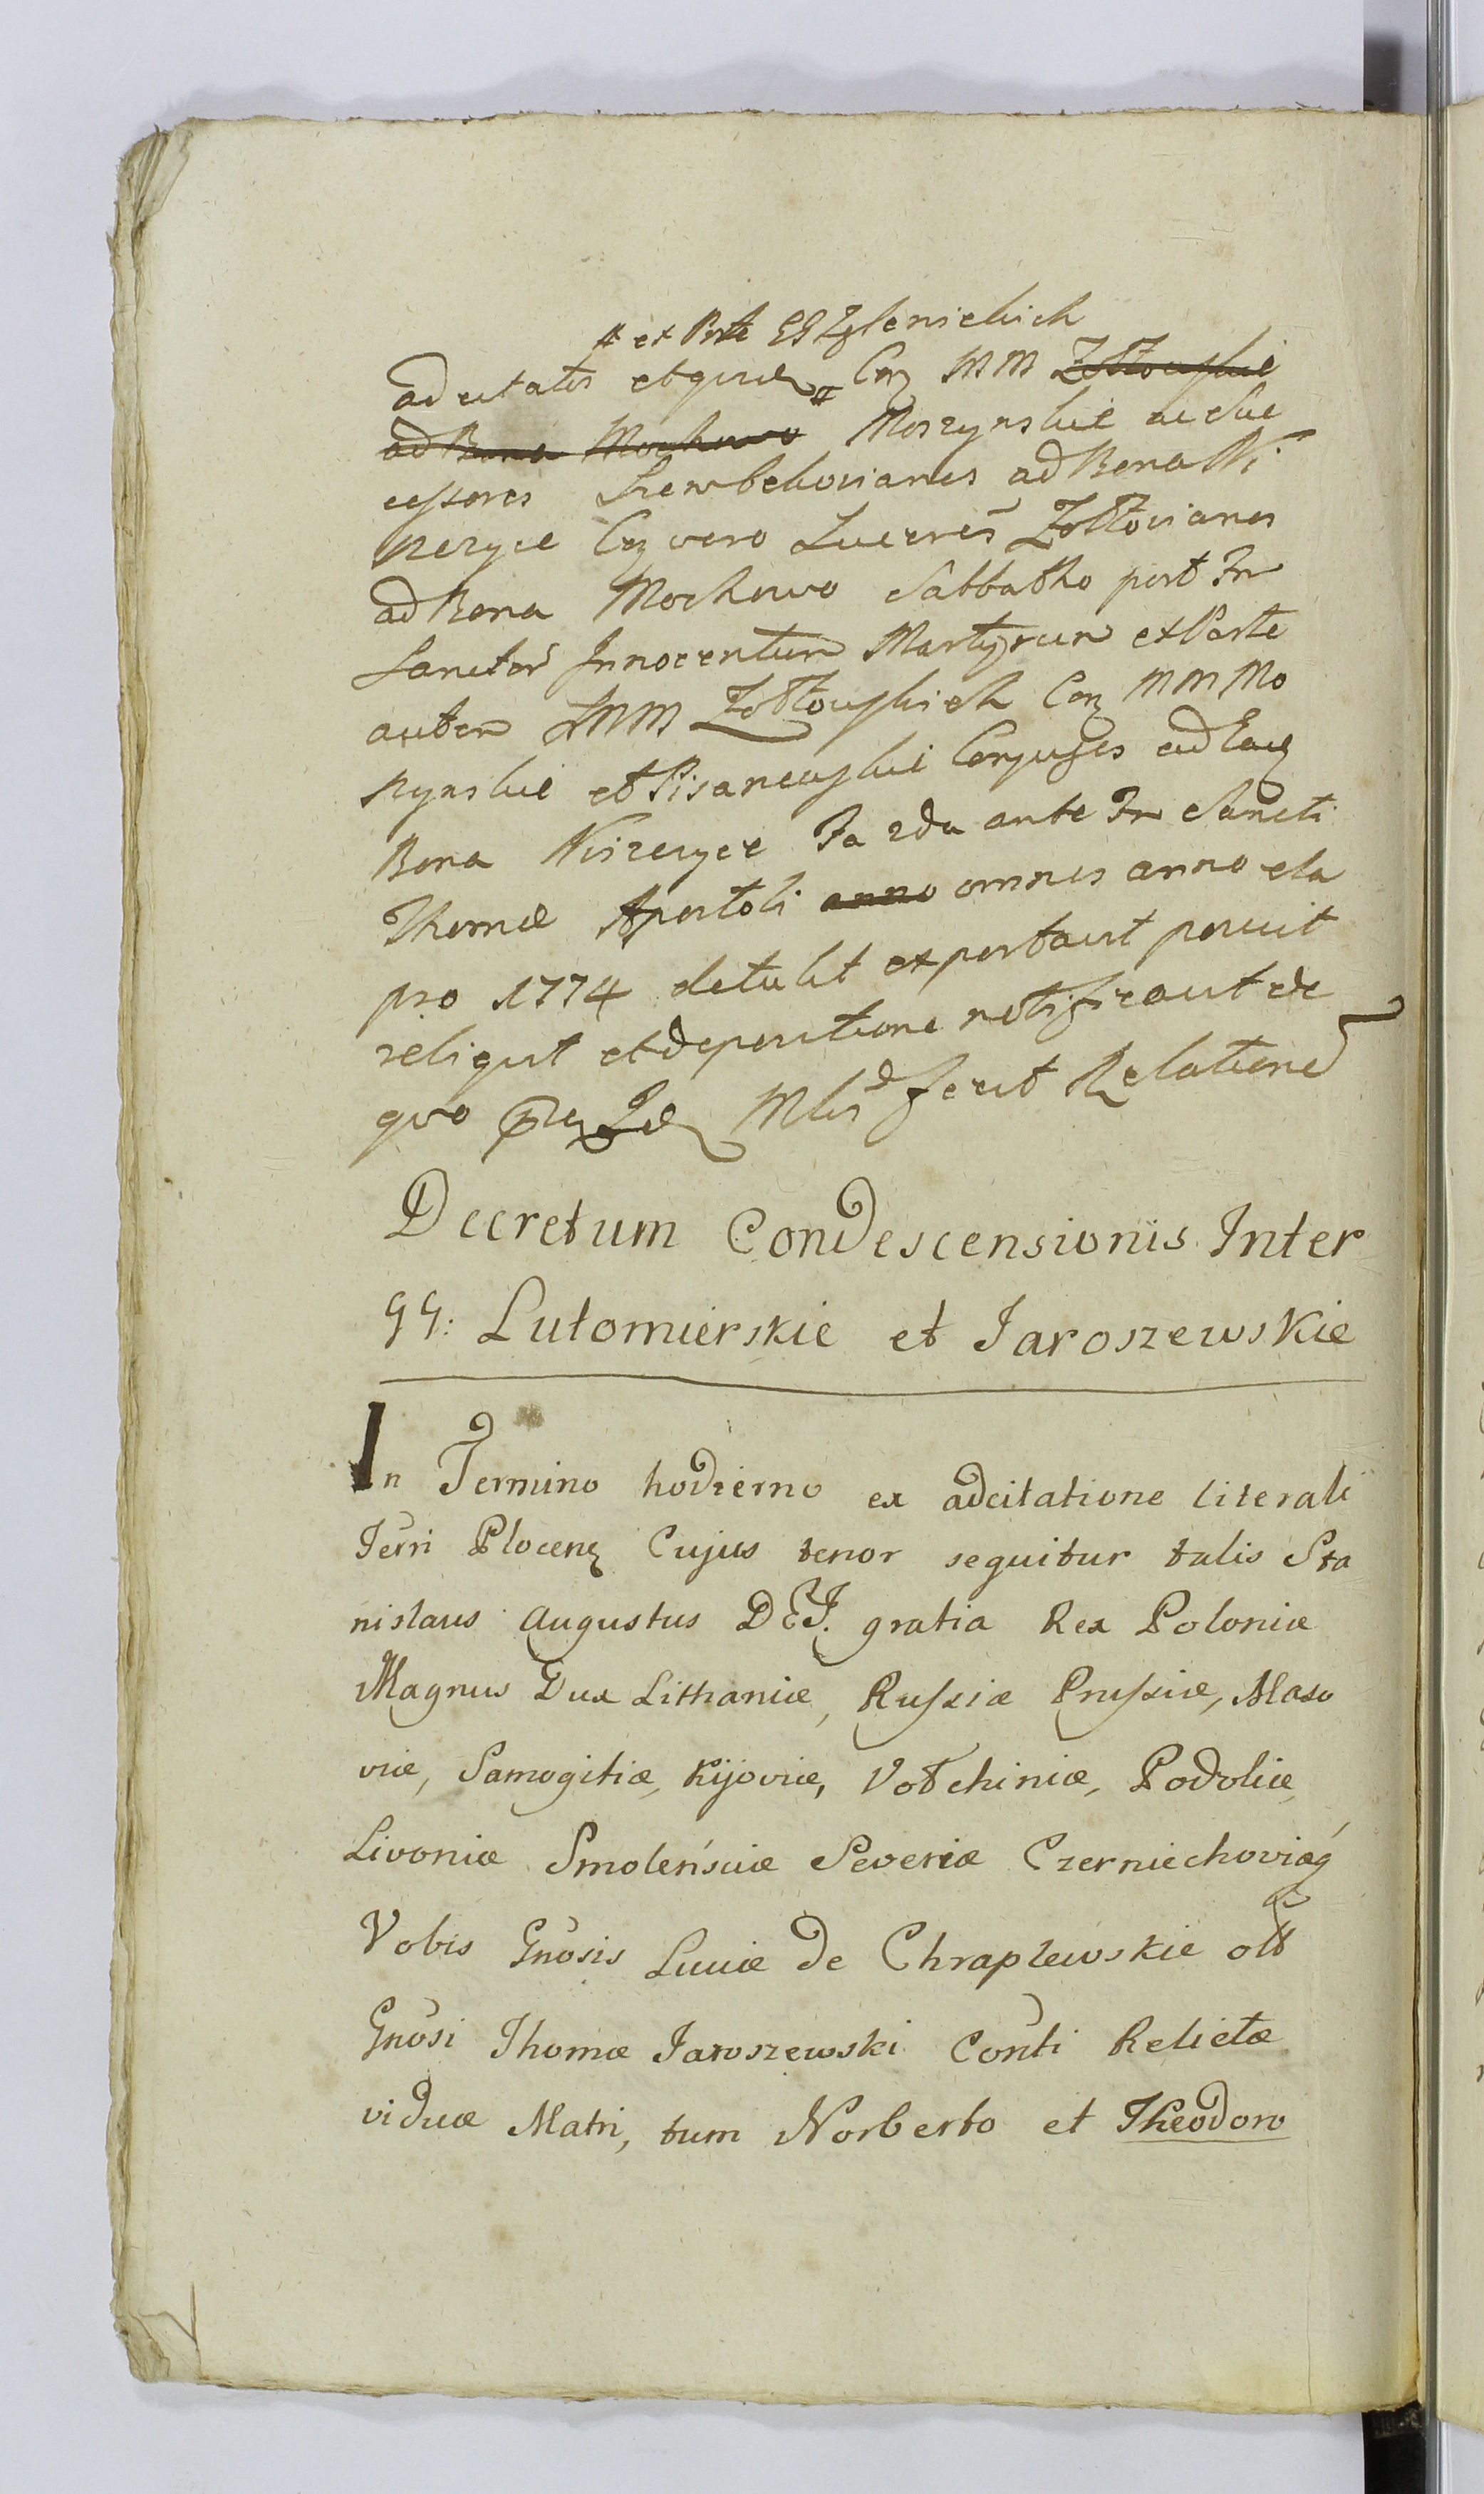 # et Parte GG Zglenickich
ad citatos etquid # Con MM Żołtowskie
ad Bona Mochowo Moszynskie ac Suc
cessores Szembekovianos ad Bona Ni
szczyce Con vero Succres Żołtovianos
ad Bona Mochowo Sabbatho post Fm
Sanctor Innocentum Martyrum ex Parte
autem MM Żołtowskich Con MM Mo
szynskie et Pisanewskie Conjuges ad Eaq
Bona Niszczyce Fa 2da ante Fm Sancti
Thomæ Apostoli anno omnes anno ela
pso 1774 detulit exportavit posuit
reliquit et de positione notificavit de
quo fecit Relationē
Decretum Condescensionis Inter
GG: Lutomierskie et Jaroszewskie
In Termino hodierno ex adcitatione literali
Terri Plocenz Cujus tenor sequitur talis Sta
nislaus Augustus DEJ. gratia Rex Poloniæ
Magnus Dux Lithaniæ, Russiæ Prussiæ, Maso
viæ, Samogitiæ, Kijoviæ, Vołchiniæ, Podoliæ,
Livoniæ Smoleńsciæ Severiæ Czerniechoviæq
Vobis Gnosis Luciæ de Chraplewskie olt
Gnosi Thomæ Jaroszewski Conti Relictæ
viduæ Matri, tum Norberto et Theodoro